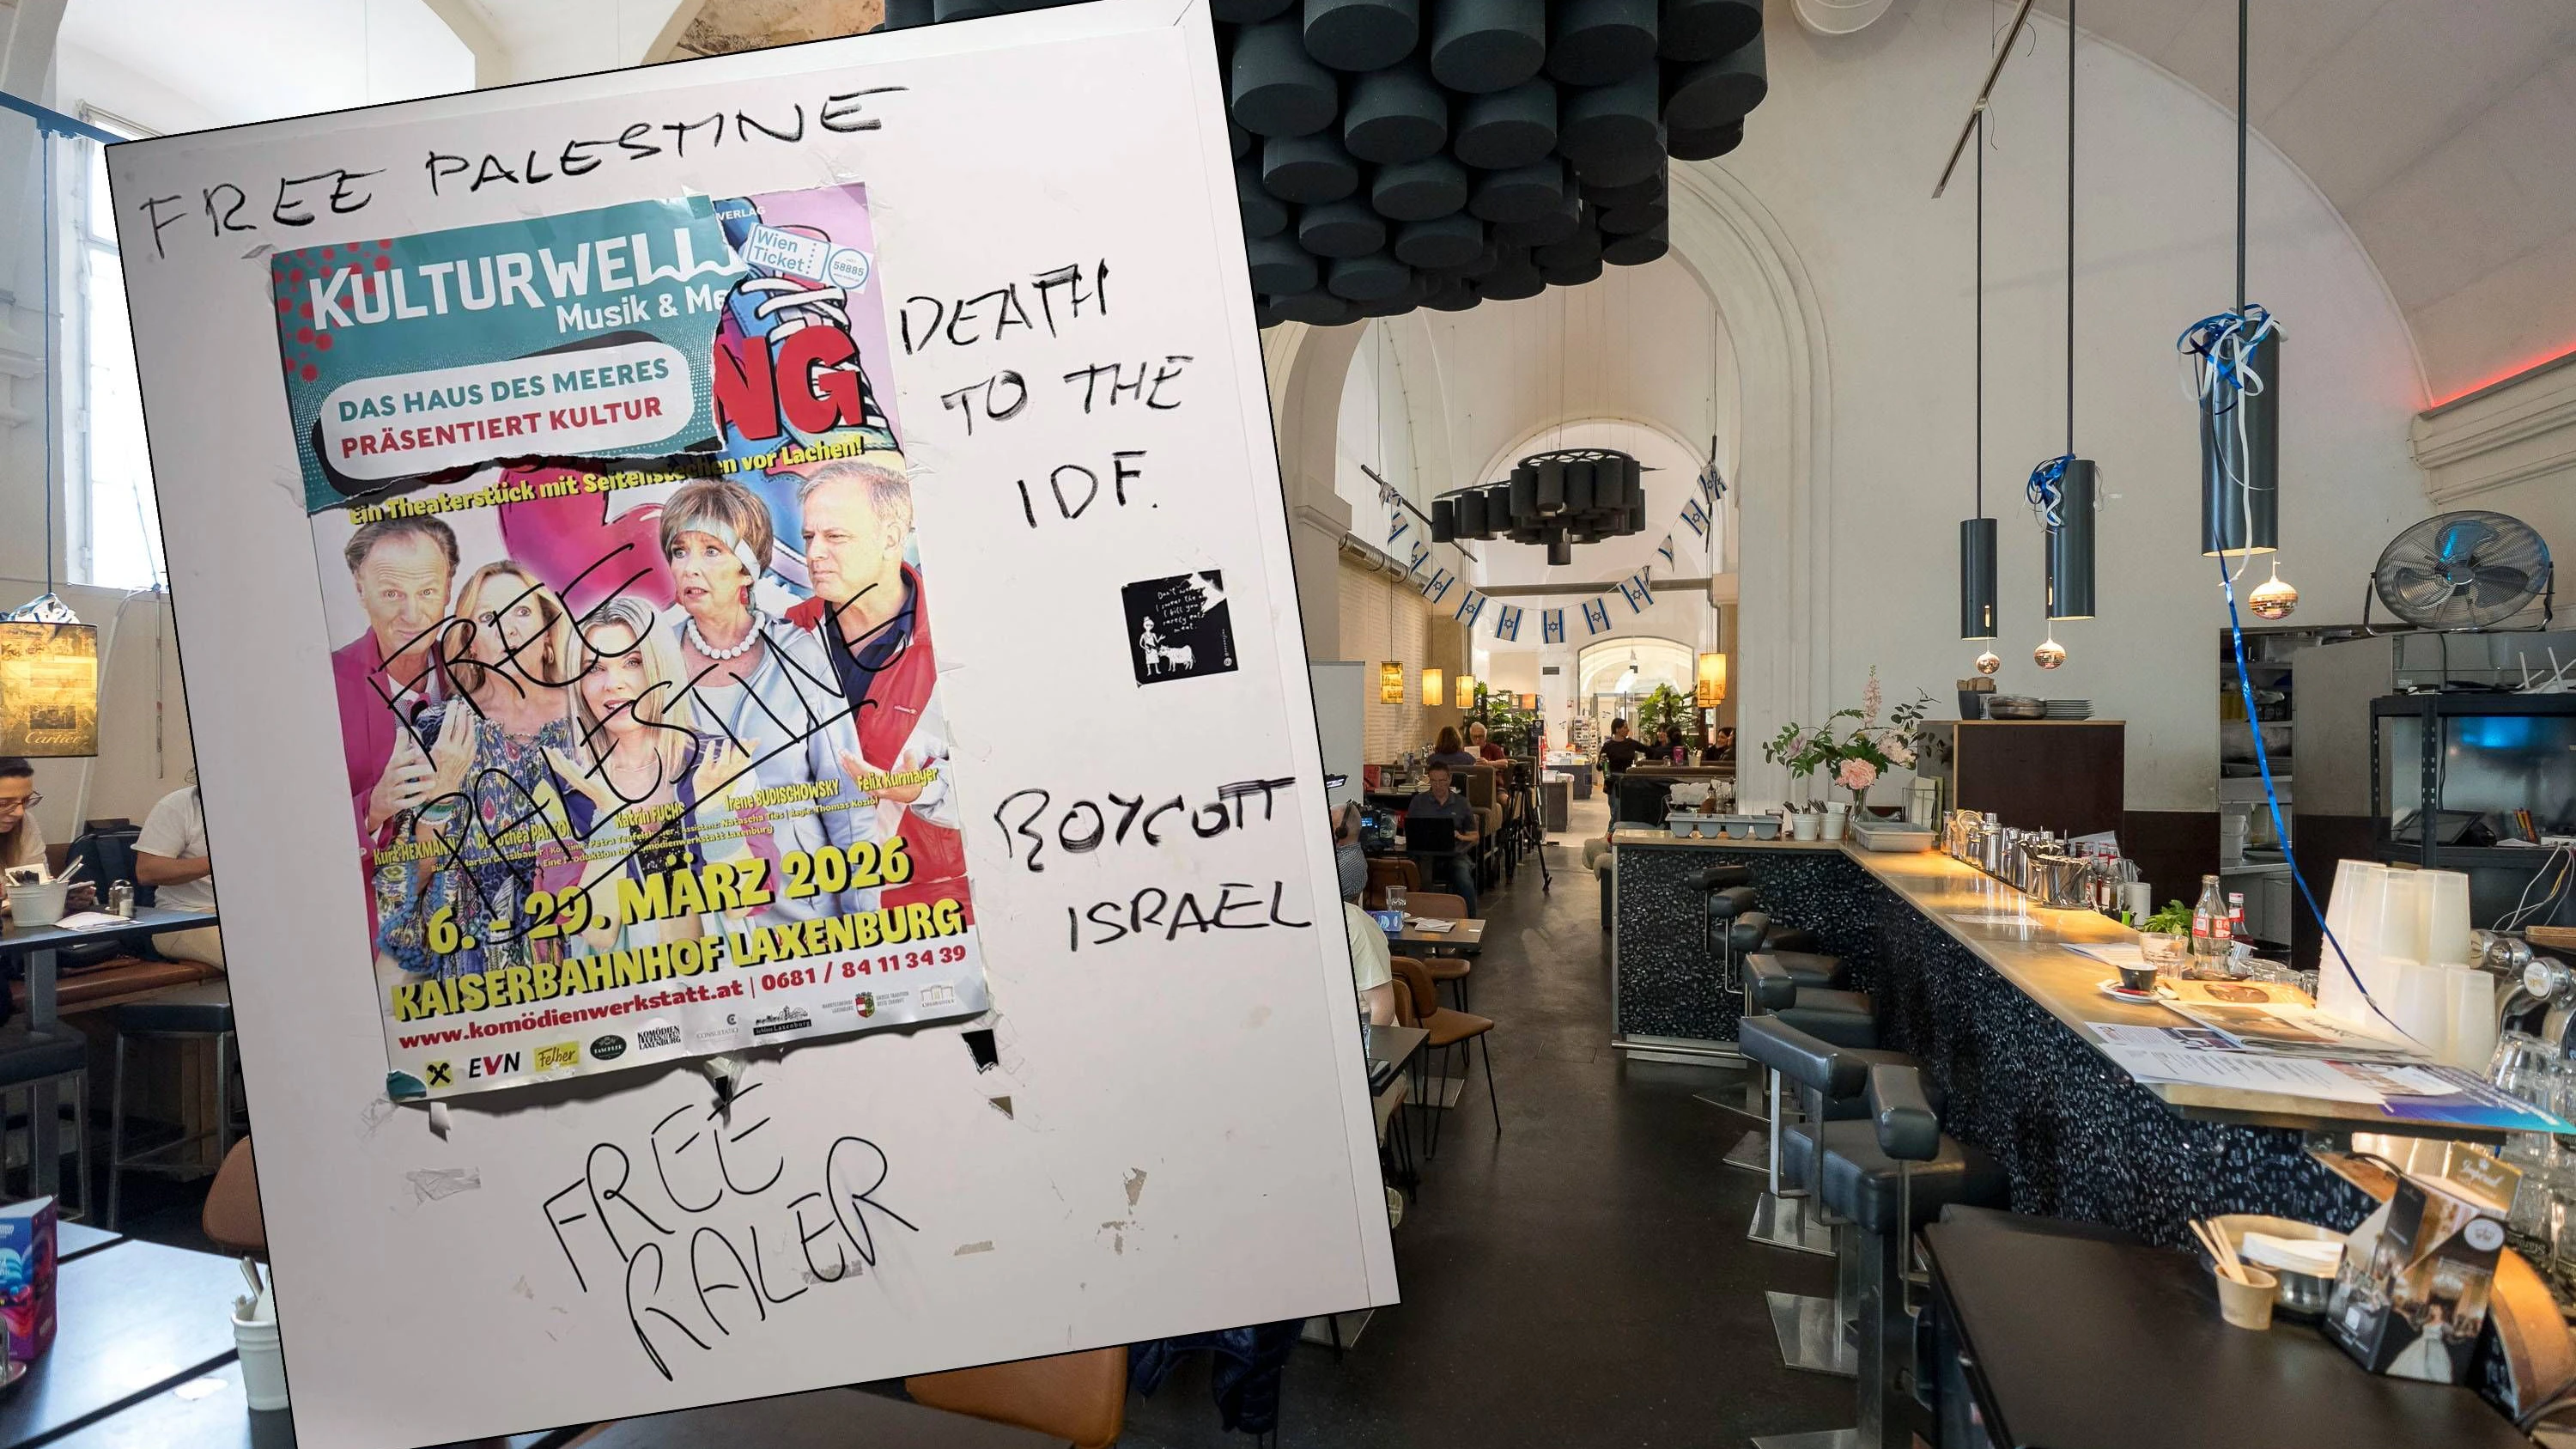 FREE PALESTINE
KULTURWELL
Musik & Me
VERLAG
Wien
Ticket
58885
DAS HAUS DES MEERES
PRÄSENTIERT KULTUR
NG
Ein Theaterstück mit Seitenstechen vor Lachen!
DEATH
TO THE
IDF.
FREE
PALESTINE
Katrin FUCHS
Irene BUDISCHOWSKY
Felix Kurmayer
6. - 29. MÄRZ 2026
KAISERBAHNHOF LAXENBURG
www.komödienwerkstatt.at | 0681 / 84 11 34 39
EVN
Felber
KOMÖDIEN
LAXENBURG
BOYCOTT
ISRAEL
FREE
RALER
Cartier